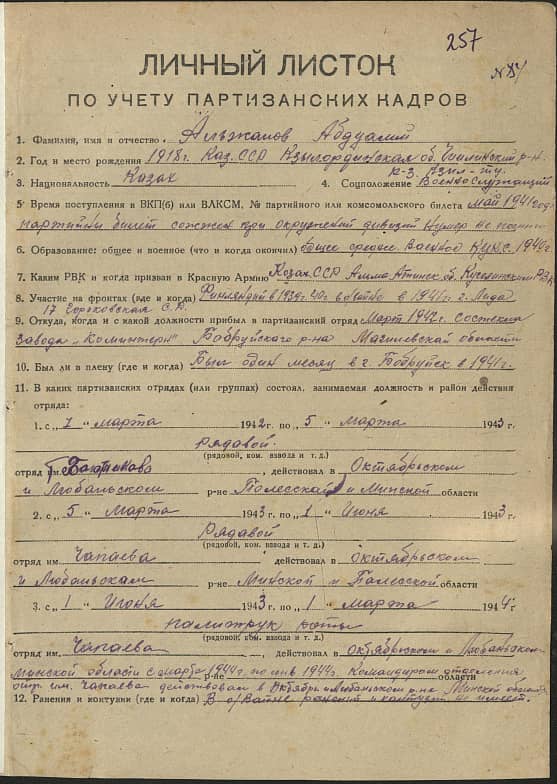 257
№ 84
ЛИЧНЫЙ ЛИСТОК
ПО УЧЕТУ ПАРТИЗАНСКИХ КАДРОВ
1. Фамилия, имя и отчество Альжанов Абдуалий
2. Год и место рождения 1918 г. Каз.ССР Кзылординская об. Чиилийский р-н.
к-з. Кзил-ту.
3. Национальность Казах 4. Соцположение Военнослужащий
5. Время поступления в ВКП(б) или ВЛКСМ, № партийного или комсомольского билета май 1941 года
партийный билет сожжен при окружении дивизии Номер не помнит
6. Образование: общее и военное (что и когда окончил) Общее средне. Военное 1940 г.
7. Каким РВК и когда призван в Красную Армию Казах ССР Алма Атинск. об. РВК
8. Участие на фронтах (где и когда) Финляндия в 1939-40 г. в о/войне в 1941 г. г. Лида
17 Горьковская С.Д.
9. Откуда, когда и с какой должности прибыл в партизанский отряд Март 1942 г.
завода „Коминтерн" Бобруйского р-на Магилевской области
10. Был ли в плену (где и когда) Был один месяц в г. Бобруйск в 1941 г.
11. В каких партизанских отрядах (или группах) состоял, занимаемая должность и район действия
отряда:
1. с „ " марта 1942 г. по „ 5 " Марта 1943 г.
рядавой.
(рядовой, ком. взвода и т. д.)
отряд им. , действовал в Октябрьском
и Любаньском р-не Палесской и Минской области
2. с „ 5 " Марта 1943 г. по „ 1 " Июня 1943 г.
Рядавой
(рядовой, ком. взвода и т. д.)
отряд им. Чапаева действовал в октябрьском
и Любаньскам р-не Минской и Палесской области
3. с „ 1 " Июня 1943 г. по „ 1 " Марта 1944 г.
палитрук роты
(рядовой, ком. взвода и т. д.)
отряд им. Чапаева , действовал в октябрьском и Любаньском
минской области с марта 1944 г. по июнь 1944 г. Командиром отделения
р-не области
отр. им. Чапаева действовал в Октябрь и Любаньском р-не Минской области
12. Ранения и контузии (где и когда) В о/войне ранений и контузий не имеет.